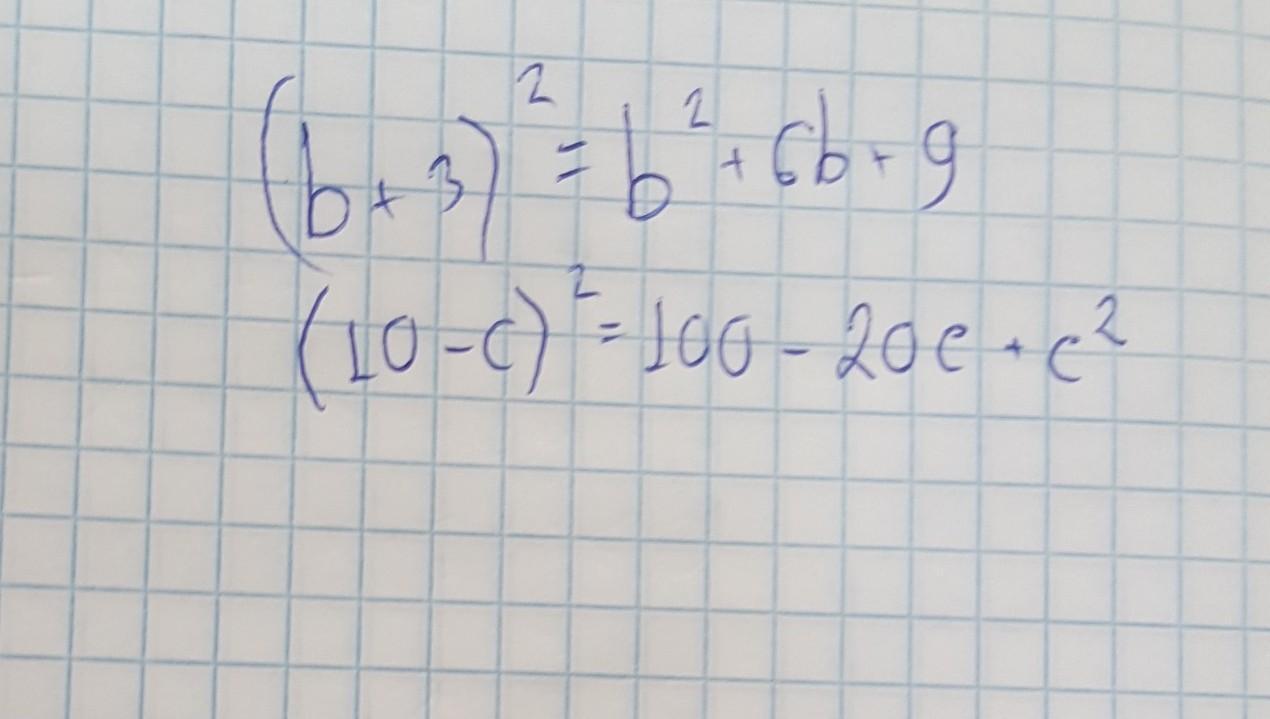 (b+3)² = b² + 6b + 9
(10-c)² = 100 - 20c + c²